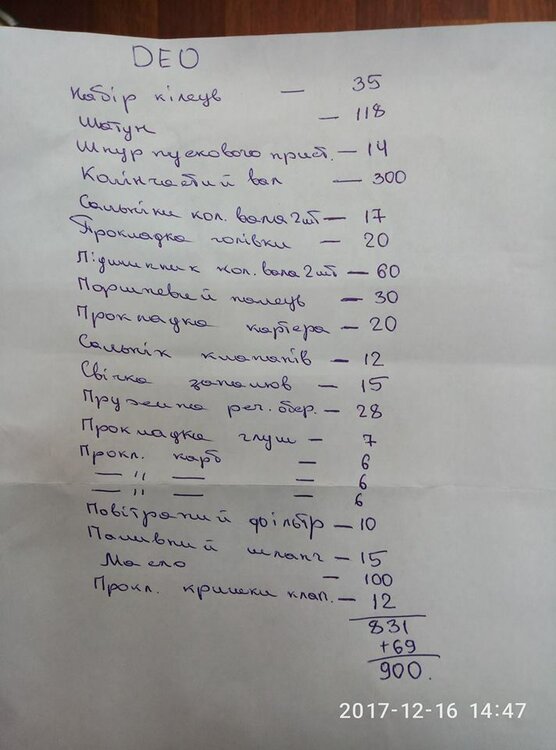 DEO
Набір кілець — 35
Шатун — 118
Шнур пускового прист. — 14
Колінчатий вал — 300
Сальніки кол. вала 2шт — 17
Прокладка голівки — 20
Підшипник кол. вала 2шт — 60
Поршневий палець — 30
Прокладка картера — 20
Сальнік клапанів — 12
Свічка запалюв — 15
Пружина рег. обер. — 28
Прокладка глуш — 7
Прокл. карб — 6
— " — — 6
— " — — 6
Повітряний фільтр — 10
Паливний шланг — 15
Масло — 100
Прокл. кришки клап. — 12
831
+69
900.
2017-12-16 14:47